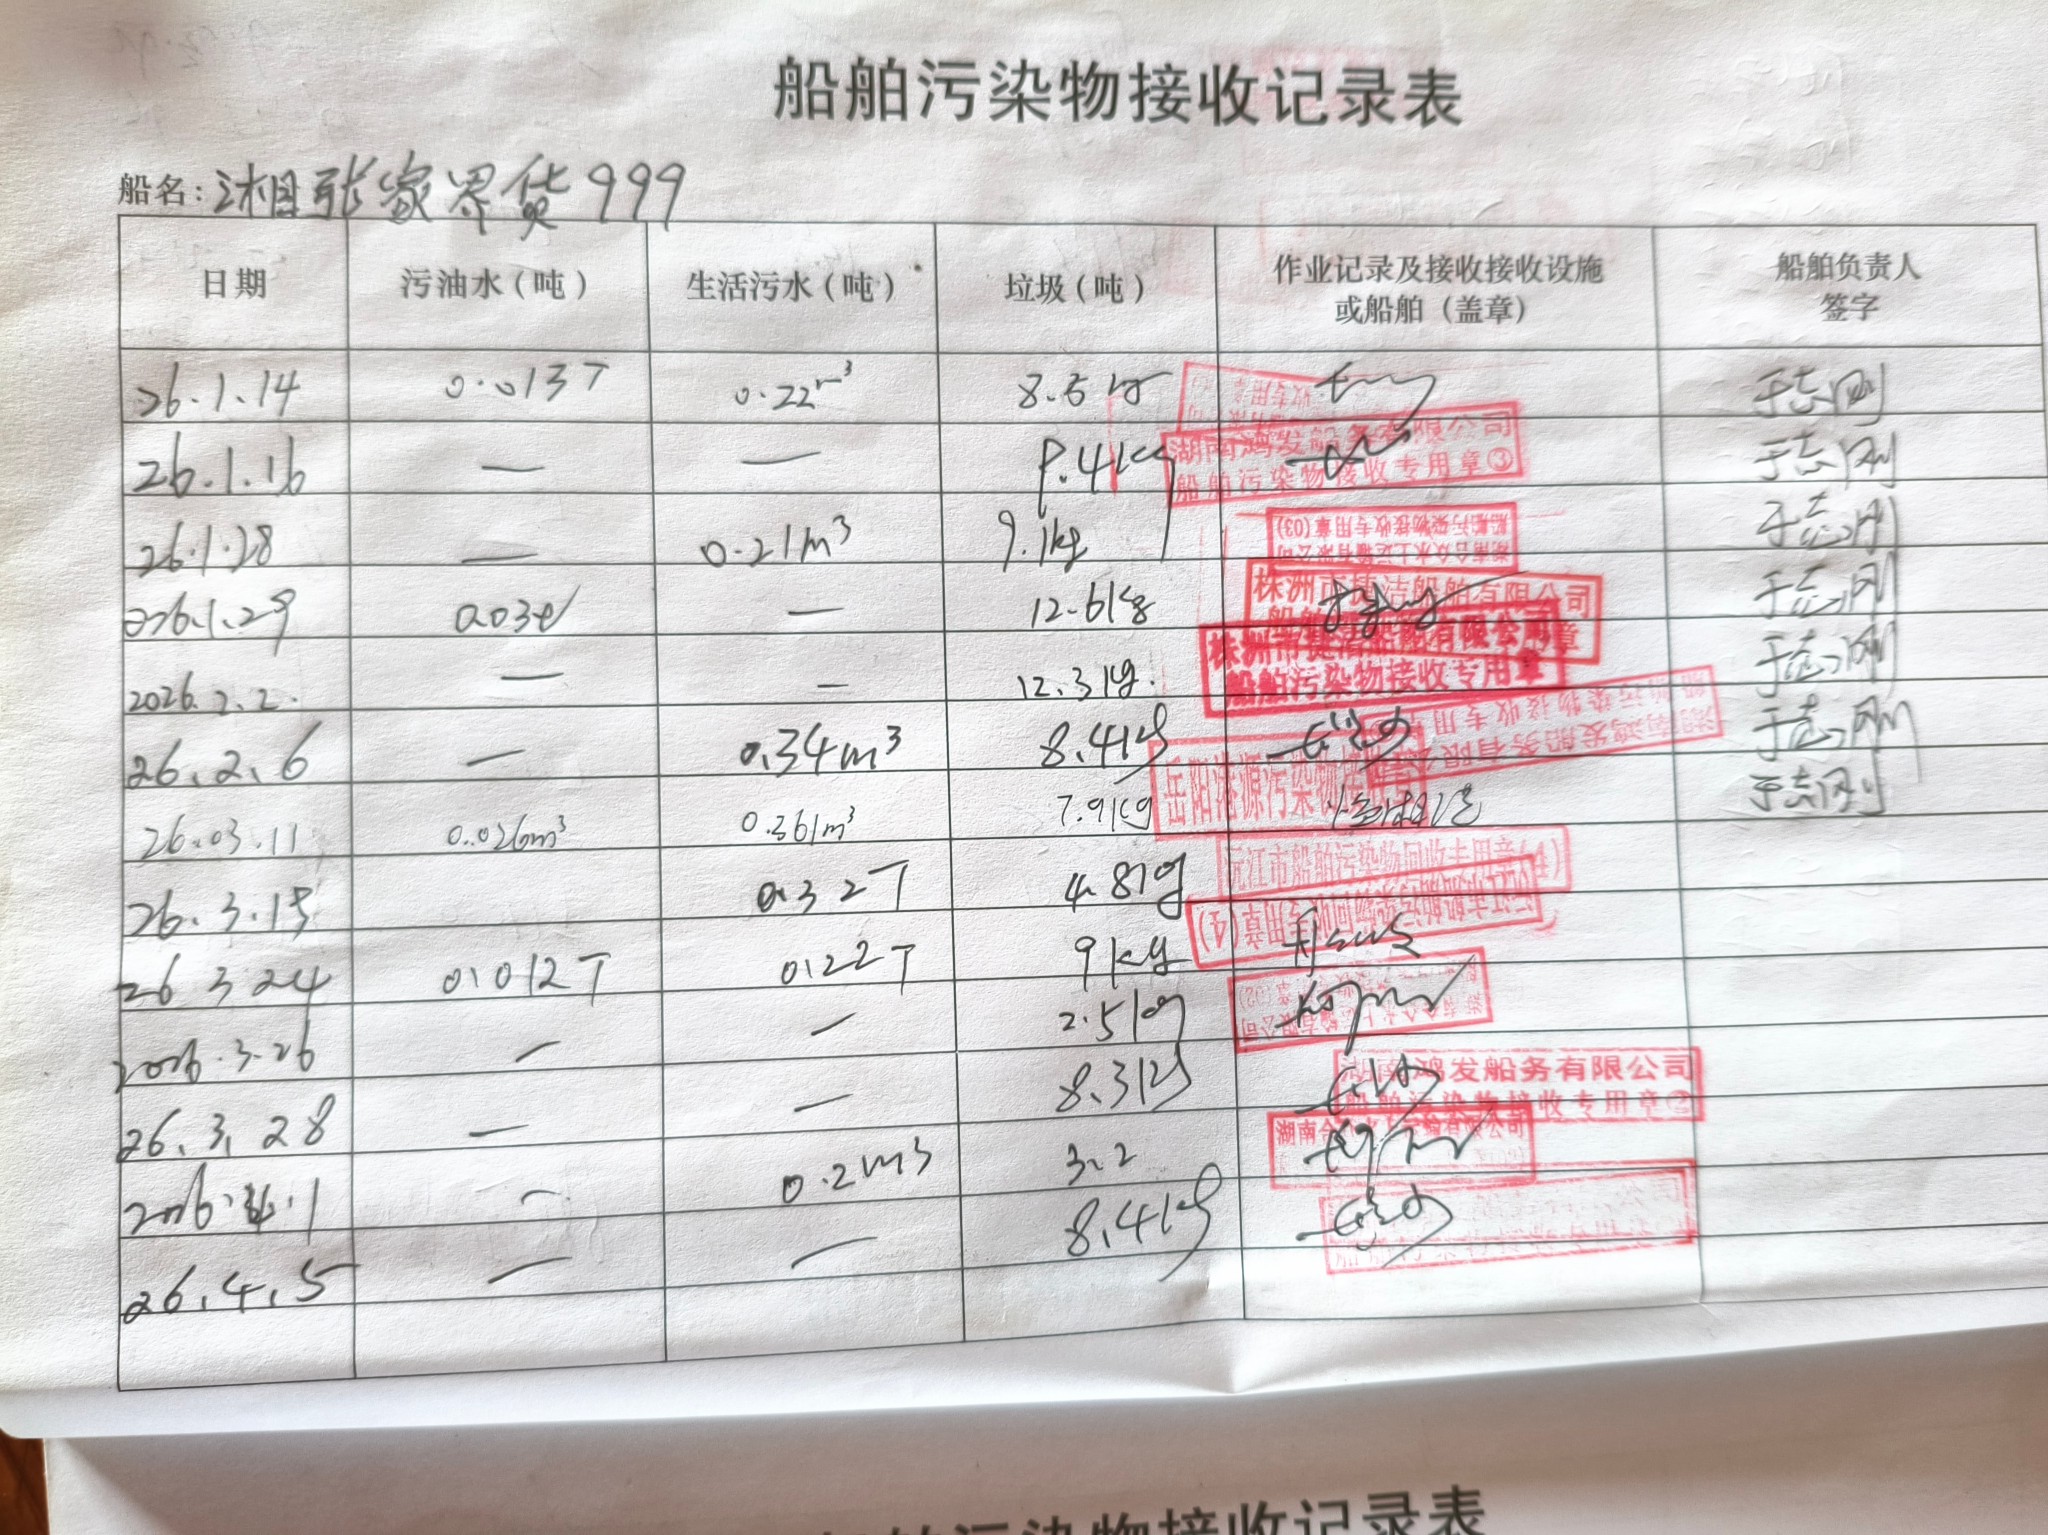 船舶污染物接收记录表
船名: 湘张家界货999
日期 污油水(吨) 生活污水(吨) 垃圾(吨) 作业记录及接收接收设施或船舶(盖章) 船舶负责人签字
26.1.14 0.013T 0.22m³ 8.5kg 于志刚
26.1.16 — — 9.4kg 湖南鸿发船务有限公司 船舶污染物接收专用章③ 于志刚
26.1.28 — 0.21m³ 9.1kg 船舶污染物接收专用章(03) 于志刚
2026.1.29 — 12.6kg 株洲市捷洁船舶有限公司 于志刚
2026.2.2. — — 12.3kg. 株洲市捷洁船舶有限公司 船舶污染物接收专用章 于志刚
26.2.6 — 0.34m³ 8.4kg 湖南鸿发船务有限公司 船舶污染物接收专用章 于志刚
26.03.11 0.026m³ 0.361m³ 7.9kg 于志刚
26.3.15 0.32T 4.8kg 沅江市船舶污染物回收专用章(4)
26 3 24 0.012T 0.22T 9kg 沅江市船舶污染物回收专用章(4)
2026.3.26 — — 2.5kg
26.3.28 — — 8.3kg 湖南鸿发船务有限公司 船舶污染物接收专用章②
2026.4.1 — 0.2m³ 3.2
26.4.5 — — 8.4kg
船舶污染物接收记录表